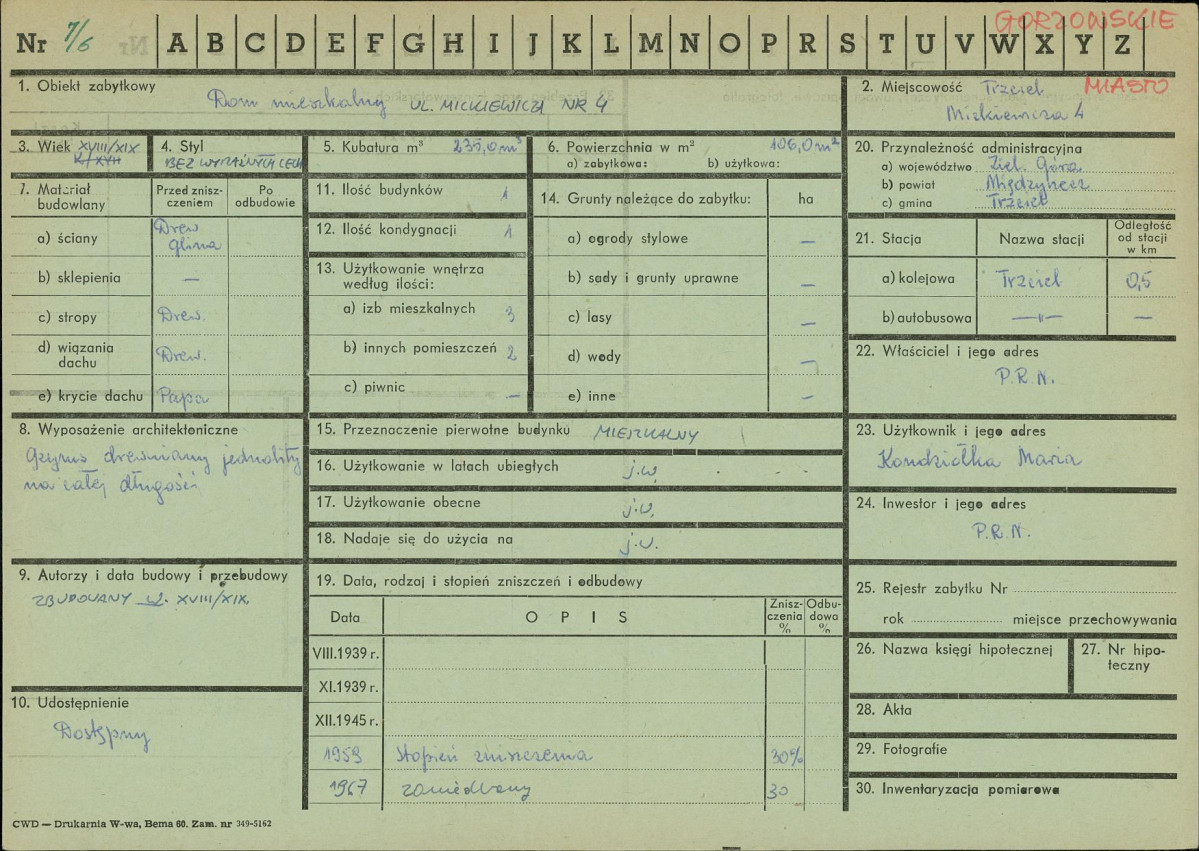 GORZOWSKIE
Nr 7/6 A B C D E F G H I J K L M N O P R S T U V W X Y Z
1. Obiekt zabytkowy
Dom mieszkalny UL. MICKIEWICZA NR 4
2. Miejscowość Trzciel MIASTO
Mickiewicza 4
3. Wiek XVIII/XIX
4. Styl
BEZ WYRAŹNYCH CECH
5. Kubatura m³ 235,0 m³
6. Powierzchnia w m² 106,0 m²
a) zabytkowa: b) użytkowa:
7. Materiał budowlany
Przed zniszczeniem
Po odbudowie
a) ściany Drew glina
b) sklepienia —
c) stropy Drew.
d) wiązania dachu Drew.
e) krycie dachu Papa
8. Wyposażenie architektoniczne
Gzyms drewniany jednolity
na całej długości
9. Autorzy i data budowy i przebudowy
ZBUDOWANY W. XVIII/XIX
10. Udostępnienie
Dostępny
11. Ilość budynków 1
12. Ilość kondygnacji 1
13. Użytkowanie wnętrza
według ilości:
a) izb mieszkalnych 3
b) innych pomieszczeń 2
c) piwnic —
14. Grunty należące do zabytku: ha
a) ogrody stylowe —
b) sady i grunty uprawne —
c) lasy —
d) wody —
e) inne —
15. Przeznaczenie pierwotne budynku MIESZKALNY
16. Użytkowanie w latach ubiegłych j.w.
17. Użytkowanie obecne j.w.
18. Nadaje się do użycia na j.w.
19. Data, rodzaj i stopień zniszczeń i odbudowy
Data OPIS Zniszczenia % Odbudowa %
VIII.1939 r.
XI.1939 r.
XII.1945 r.
1959 stopień zniszczenia 30%
1967 zaniedbany 30
20. Przynależność administracyjna
a) województwo Ziel. Góra
b) powiat Międzyrzecz
c) gmina Trzciel
21. Stacja Nazwa stacji Odległość od stacji w km
a) kolejowa Trzciel 0,5
b) autobusowa —"— —
22. Właściciel i jego adres
P.R.N.
23. Użytkownik i jego adres
Kondziołka Maria
24. Inwestor i jego adres
P.R.N.
25. Rejestr zabytku Nr
rok miejsce przechowywania
26. Nazwa księgi hipotecznej
27. Nr hipoteczny
28. Akta
29. Fotografie
30. Inwentaryzacja pomiarowa
CWD — Drukarnia W-wa, Bema 60. Zam. nr 349-5162